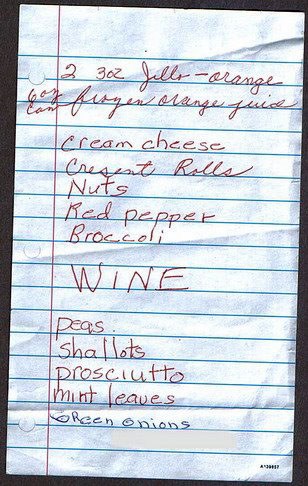 2 3oz Jello - orange
6oz can frozen orange juice
Cream cheese
Cresent Rolls
Nuts
Red pepper
Broccoli
WINE
peas.
Shallots
prosciutto
mint leaves
Green onions